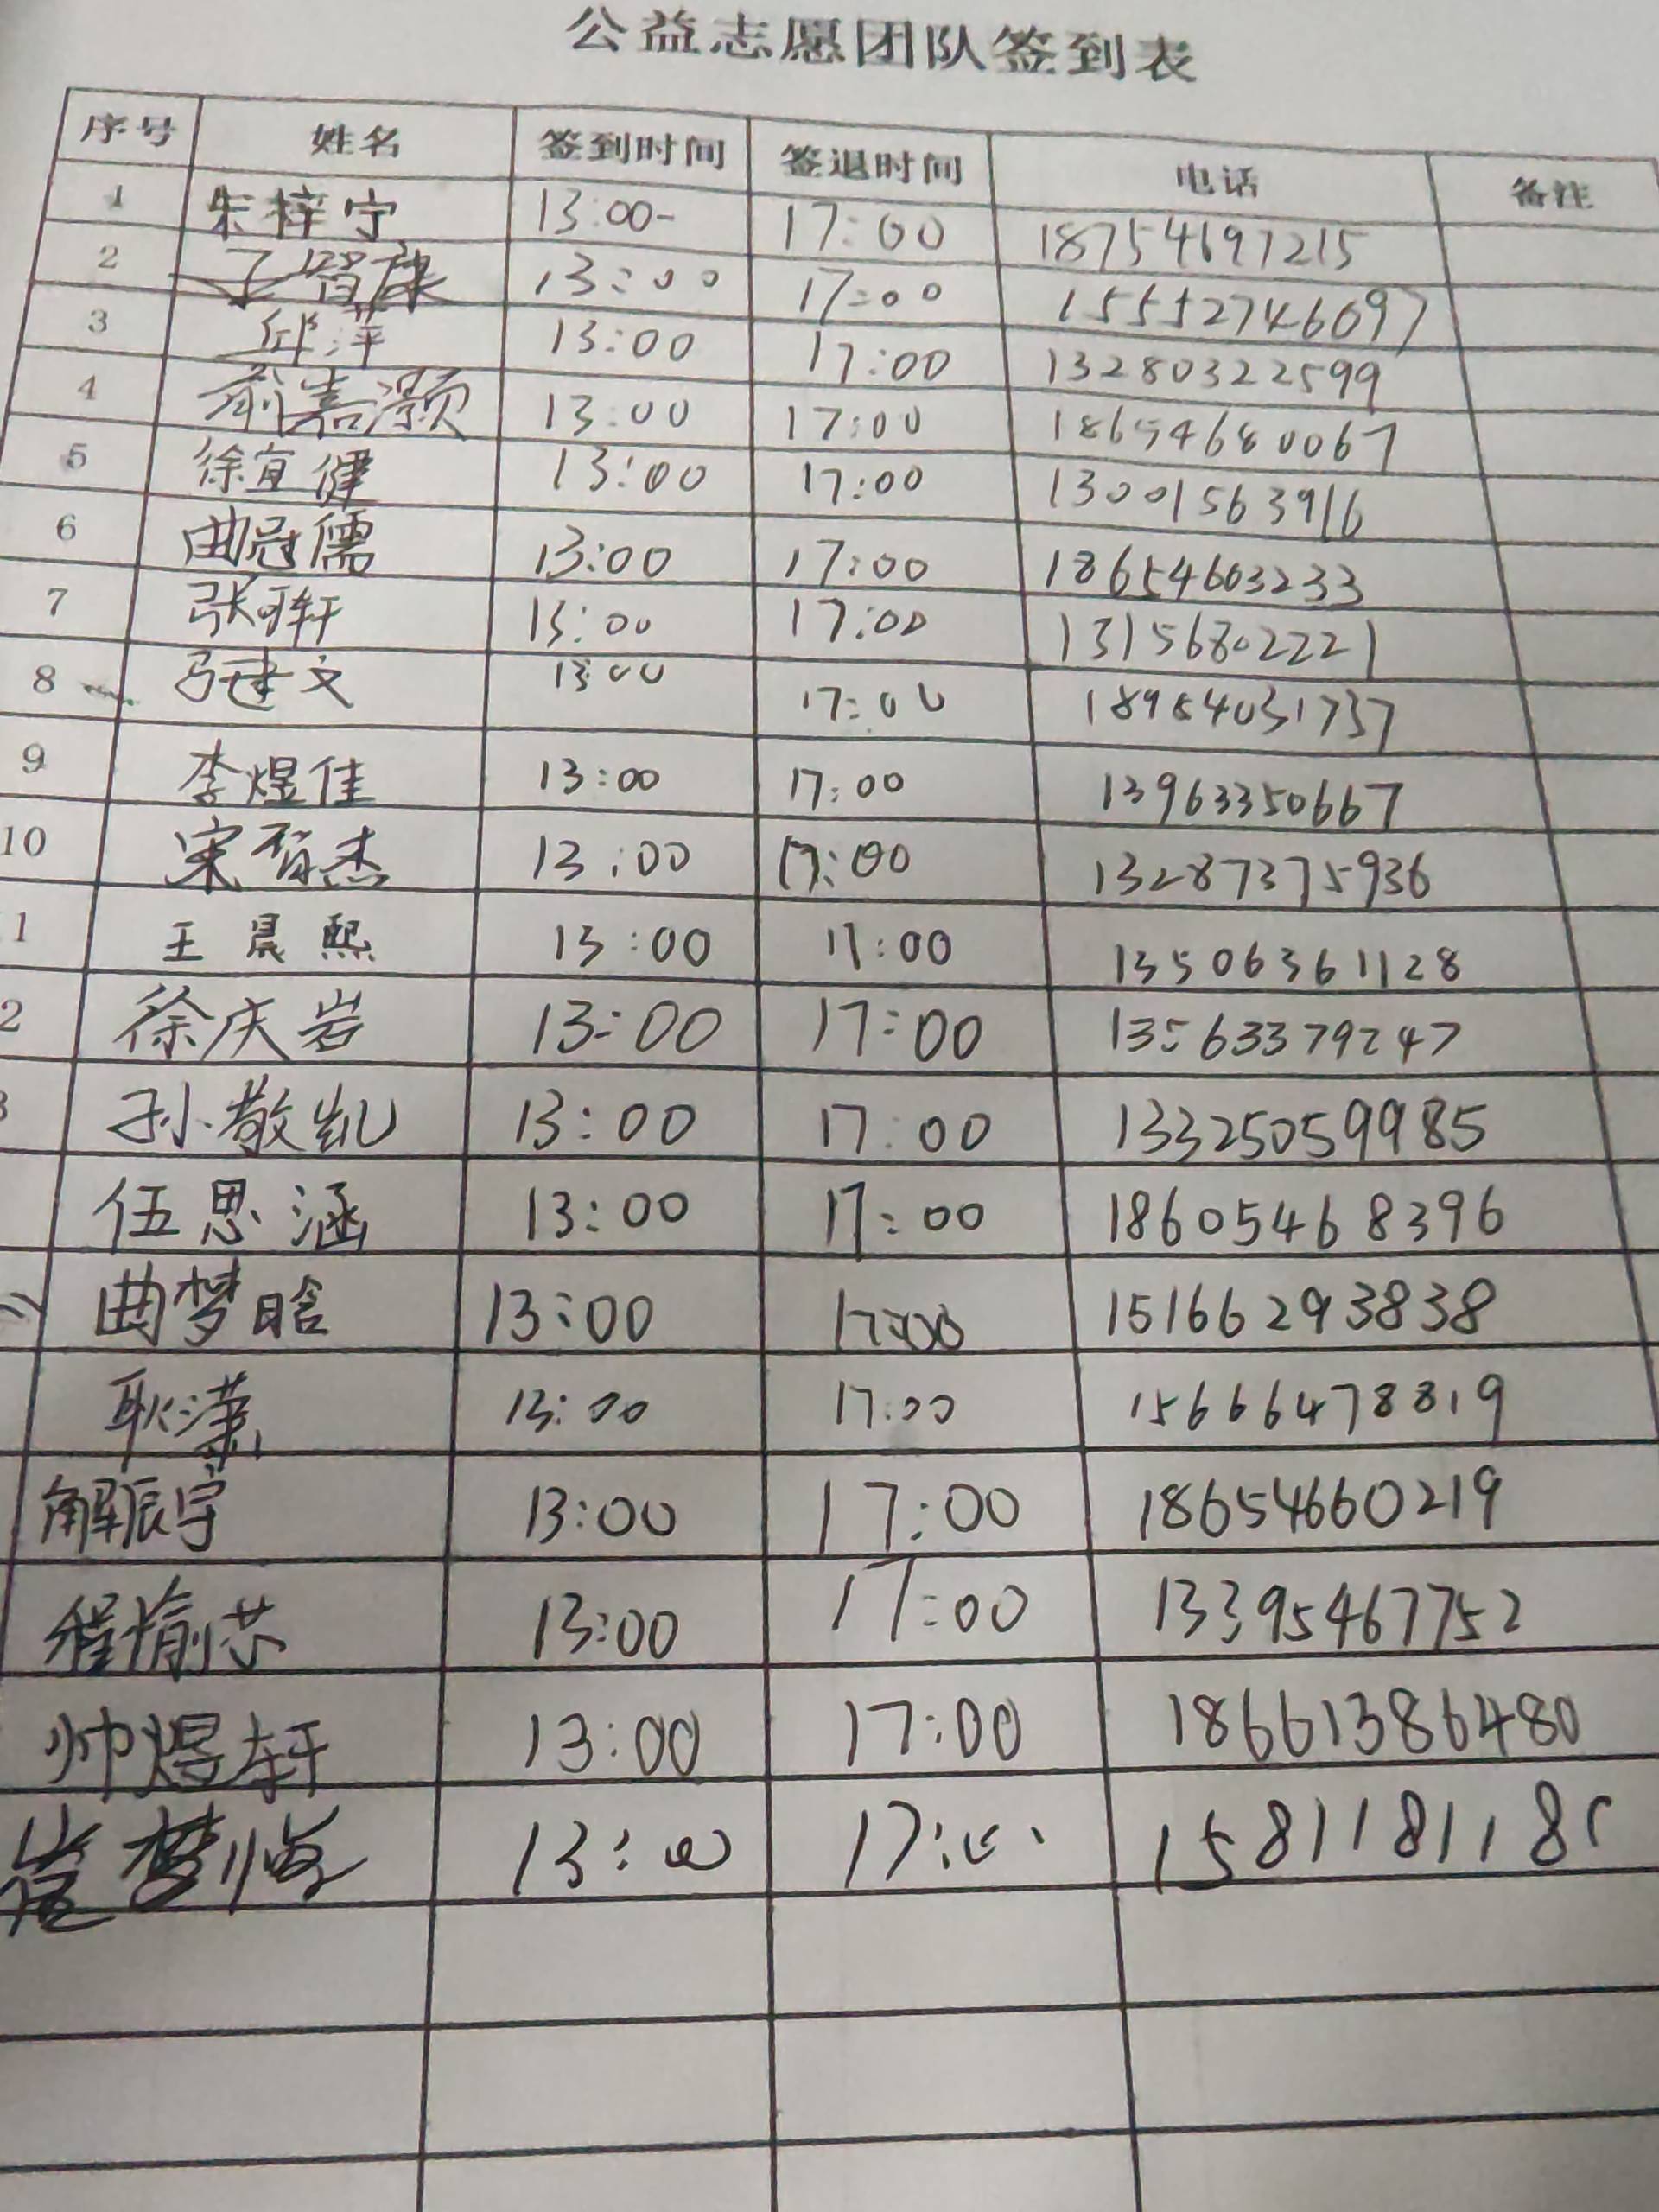 公益志愿团队签到表
序号 姓名 签到时间 签退时间 电话 备注
1 朱梓宁 13:00- 17:00 18754697215
2 丁智康 13:00 17:00 15552746097
3 邱萍 13:00 17:00 13280322599
4 俞嘉灏 13:00 17:00 18654680067
5 徐宜健 13:00 17:00 13001563916
6 曲冠儒 13:00 17:00 18654603233
7 张珂轩 13:00 17:00 13156802221
8 马建文 13:00 17:00 18954031737
9 李煜佳 13:00 17:00 13963350667
10 宋有杰 13:00 17:00 13287375936
1 王晨熙 13:00 17:00 13506361128
2 徐庆岩 13:00 17:00 13563379247
3 孙敬凯 13:00 17:00 13325059985
伍思涵 13:00 17:00 18605468396
曲梦晗 13:00 17:00 15166293838
耿潇 13:00 17:00 15666478819
解辰宇 13:00 17:00 18654660219
程愉芯 13:00 17:00 13395467752
帅煜轩 13:00 17:00 18661386480
崔梦 13:00 17:00 1581181118